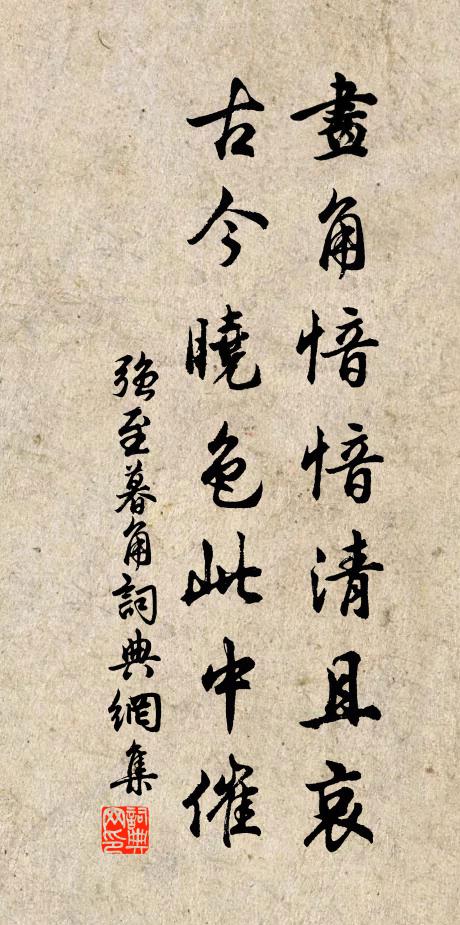 畫角愔愔清且哀
古今曉色此中催
強至暮角詞典網集
詞典网印